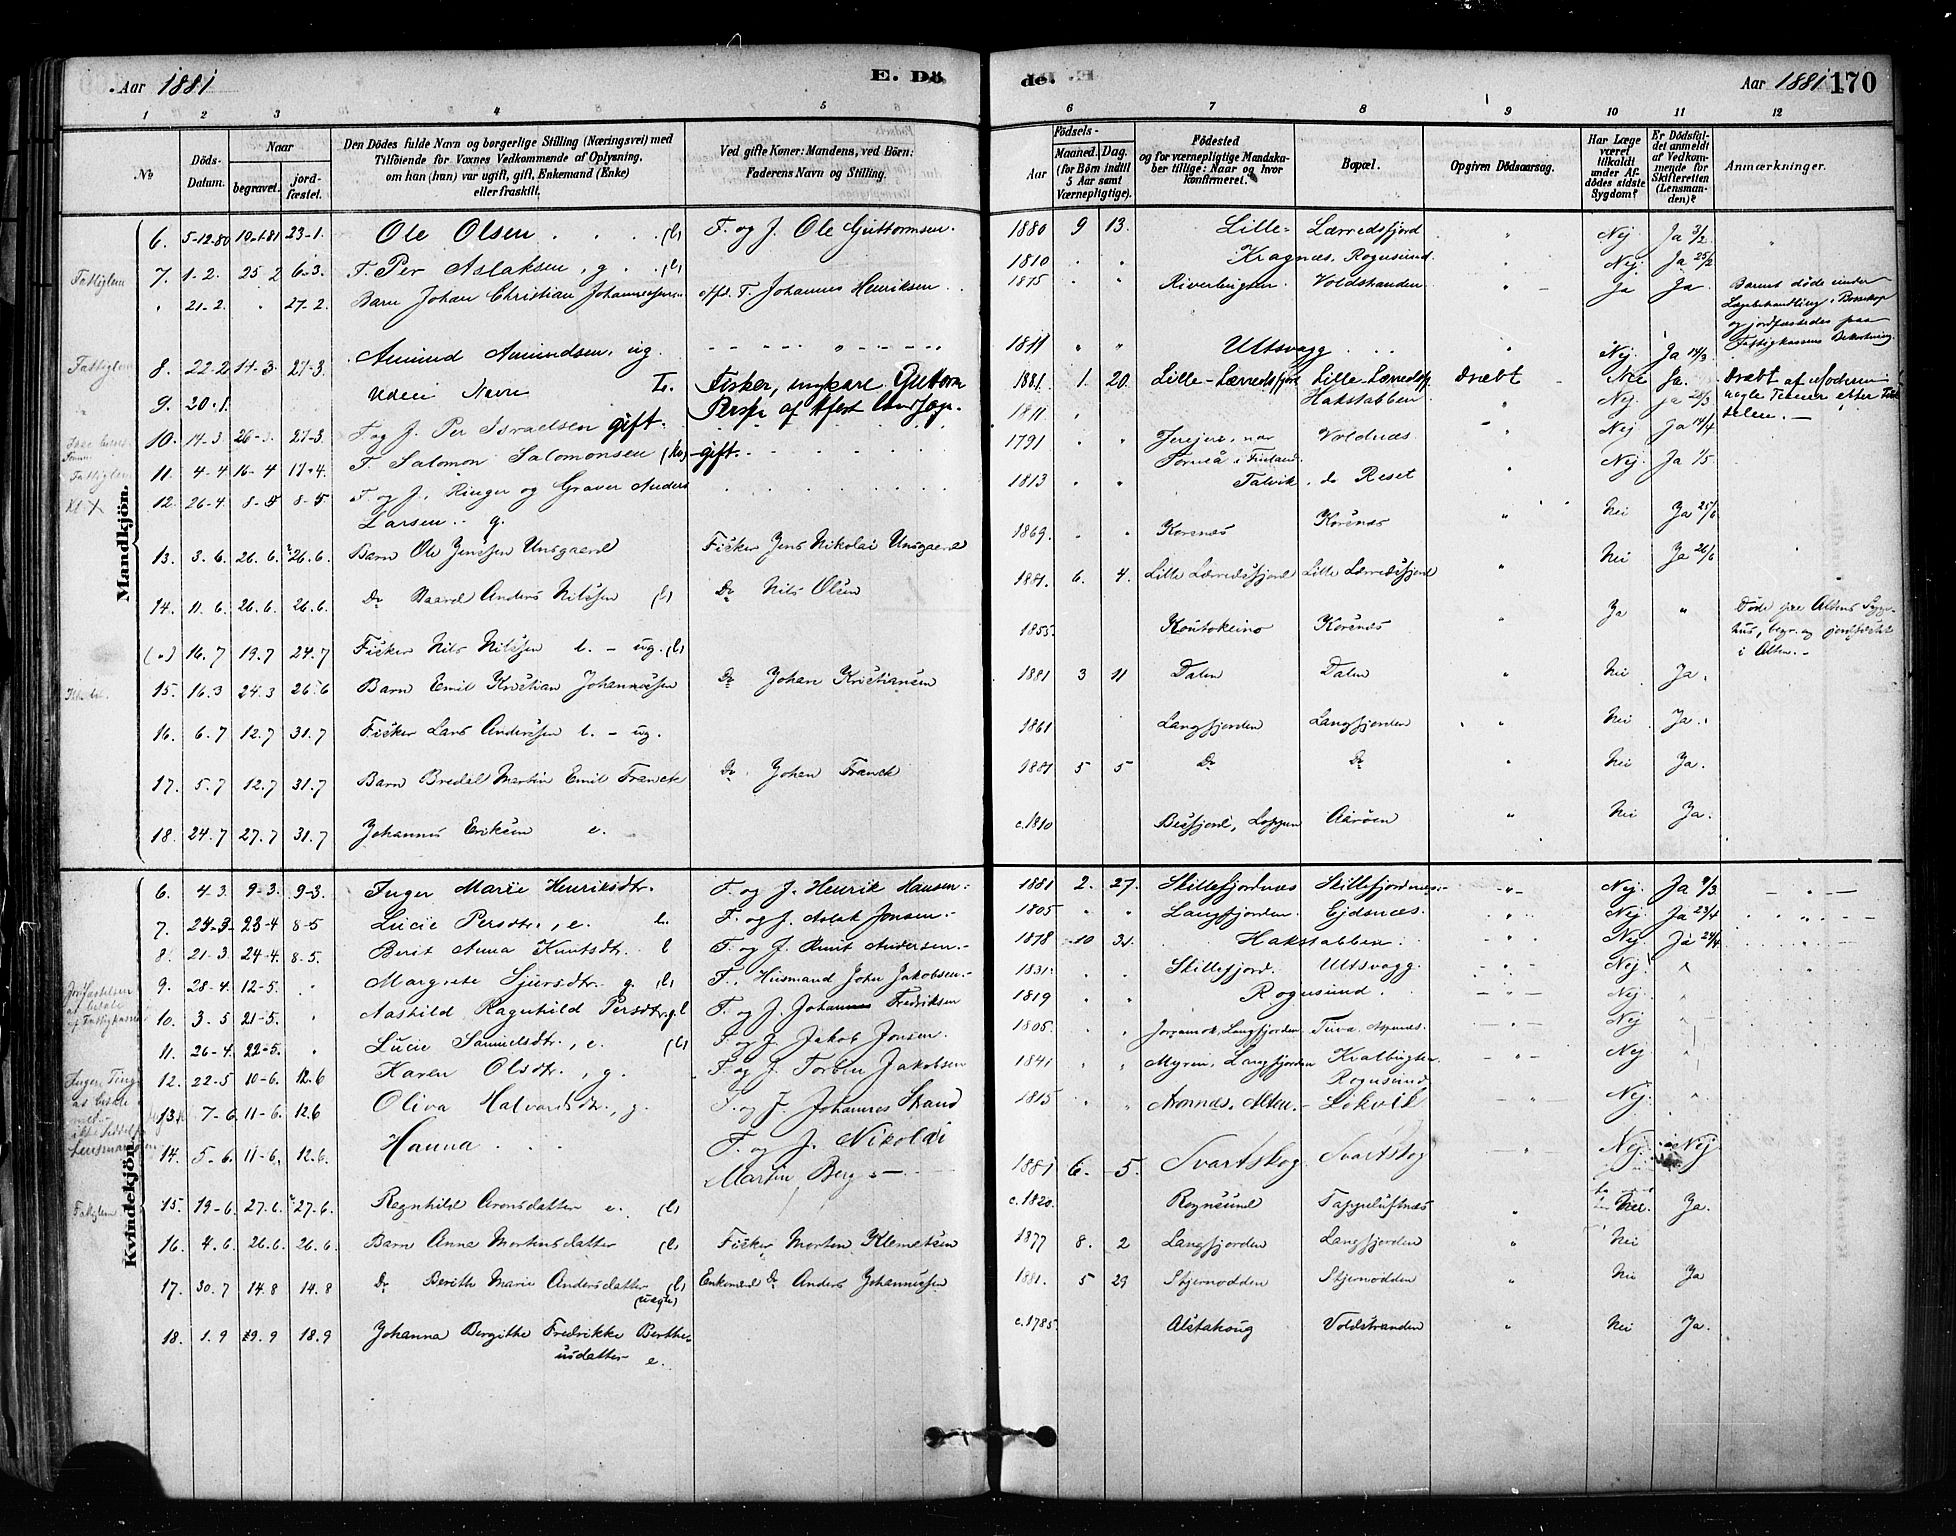 Aar 1881
E. Dö
de.
Aar 1881 170
1 2 3 4 5 6 7 8 9 10 11 12
No
Döds-Datum.
Naar
begravet.
jordfæstet.
Den Dödes fulde Navn og borgerlige Stilling (Næringsvei) med
Tilföiende for Voxnes Vedkommende af Oplysning,
om han (hun) var ugift, gift, Enkemand (Enke)
eller fraskilt.
Ved gifte Koner: Mandens, ved Börn:
Faderens Navn og Stilling.
Födsels-
Aar
Maaned. Dag.
(for Börn indtil
5 Aar samt
Værnepligtige).
Födested
og for værnepligtige Mandskaber tillige: Naar og hvor
konfirmeret.
Bopæl.
Opgiven Dödsaarsag.
Har Læge
været
tilkaldt
under Afdödes sidste
Sygdom?
Er Dödsfaldet anmeldt
af Vedkommende for
Skifteretten
(Lensmanden)?
Anmærkninger.
Mandkjön.
6. 5-12-80 19-1-81 23-1. Ole Olsen (l) F. og J. Ole Guttormsen. 1880 9 13. Lille-Lærredsfjord " Nej Ja 3/2 "
Fattiglem 7. 1-2. 25-2 6-3. F. Per Aslaksen, g. (l) 1810 " " Kragnæs, Rognsund " Nej Ja 25/2
" 21-2. " 27-2. Barn Johan Christian Johannessen Afd. F. Johannes Henriksen 1875 Riverbugten Voldstranden " Ja Ja Barnet döde under
Lægebehandling i Bosekop
og jordfæstedes paa
Fattigkassens Bekostning.
Fattiglem 8. 22-2 14-3. 27-3. Amund Amundsen, ug. 1811 " " Ultsvagg " Nej Ja 14/3
9. 20-1. Uden Navn L. Fisker, ungkarl Guttorm 1881. 1. 20. Lille-Lærredsfjord Lille-Lærredsfj. Dræbt Nei Ja. Dræbt af Moderen
10. 14-3. 26-3. 27-3. F. og J. Per Israelsen gift. 1811 Hakstabben " Nej Ja 28/3
11. 4-4 16-4 17-4. F. Salomon Salomonsen (kv) gift. 1791 " " Torneå i Finland. Voldnæs " Nej Ja 14/4
12. 26-4. 8-5 8-5 F. og J. Ringer og Graver Anders
Larsen g. 1813 " " Talvik, do Reset " Nej Ja 1/5.
13. 3. 6. 26. 6. 26. 6. Barn Ole Jenssen Unsgaard Fisker Jens Nikolai Unsgaard 1869. " " Korsnæs Korsnæs " Nei Ja 25/6
14. 11. 6. 26. 6. 26. 6. Do Anders Nilssen (l) Do Nils Olsen 1881. 6. 4. Lille Lærredsfjord Lille Lærredsfjord " Nei Ja 26/6
(") 16. 7 19. 7 24. 7 Fisker Nils Nilssen l. - ug. (l) 1855. Koutokeino Korsnæs Ja " Döde paa Altens Sygehus, begr. og jordfæstet
i Alten.
15. 16. 3 24. 3 26. 6 Barn Emil Kristian Johannessen Do Johan Kristiansen 1881 3 11 Dalen Dalen " Nei Ja.
16. 6. 7 12. 7 31. 7 Fisker Lars Anderssen l. - ug. 1861 Langfjorden Langfjorden " Nei Ja.
17. 5. 7 12. 7 31. 7 Barn Bredal Martin Emil Franck Do Johan Franck 1881 5 5 Do Do " Nei Ja.
18. 24. 7 27. 7 31. 7 Johannes Eriksen e. c. 1810 Besfjord, Loppen Aaröen " Nei Ja.
Kvindekjön.
6. 4.3. 9-3. 9-3. Inger Marie Henriksdtr. F. og J. Henrik Hansen. 1881 2. 27. Skillefjordnæs Skillefjordnæs " Nej Ja 9/3
7. 23-3. 23-4 8-5 Lucie Persdtr., e. l. F. og J. Aslak Jonsen. 1805 " " Langfjorden. Ejdsnæs. " Nej Ja 23/4
8. 21-3 24-4. 8-5. Berit Anna Knutsdtr. l F. og J. Knut Andersen. 1878 10 31. Hakstabben. " Nej. Ja 24/4
9. 28-4. 12-5. " Margrete Sjursdtr. g. (l) F. Husmand John Jakobsen. 1831. " " Skillefjord. Ultsvagg. " Nej. "
10. 3. 5 21-5. " Aashild Ragnhild Persdtr. g. l F. og J. Johannes Fredriksen 1819 " " Rognsund. " Nej
11. 26-4. 22-5. " Lucie Samuelsdtr., e. (l) F. og J. Jakob Jonsen. 1806. " " Langfjorden Tuva, Aspenæs. Nej
12. 22-5 10-6. 12.6 Karen Olsdtr., g. F. og J. Torben Jakobsen 1841 " " Myren, Langfjorden Kvalbugten
Rognsund Nej
13. 7-6. 11-6. 12.6 Oliva Halvardsdtr., g. F. og J. Johannes Strand 1815 " Aronnæs, Alten. Lökvik Nej.
14. 5-6. 11-6. 12.6. Hanna F. og J. Nikolai
Martin Berg 1881 6. 5. Svartskog Svartskog Nej. Nej
Fattiglem 15. 19-6. 27.6. 27-6. Ragnhild Aronsdatter e. (l) c. 1820. Rognsund Tappeluftnæs " Nei. Ja.
16. 4.6. 26.6. 26.6. Barn Anne Mortensdatter (l) Fisker Morten Klemetsen 1877 8. 2 Langfjorden Langfjorden " Nei
17. 30. 7 14. 8 14. 8 Do Berith Marie Andersdatter (l)
(uægte) Enkemand Do Anders Johannessen 1881. 5 29 Stjernodden Stjernodden " Nei Ja
18. 1. 9 9. 9 18. 9 Johanna Bergithe Fredrikke Berthe-
usdatter e. c. 1785. Alstahoug Voldstranden " Nei Ja.